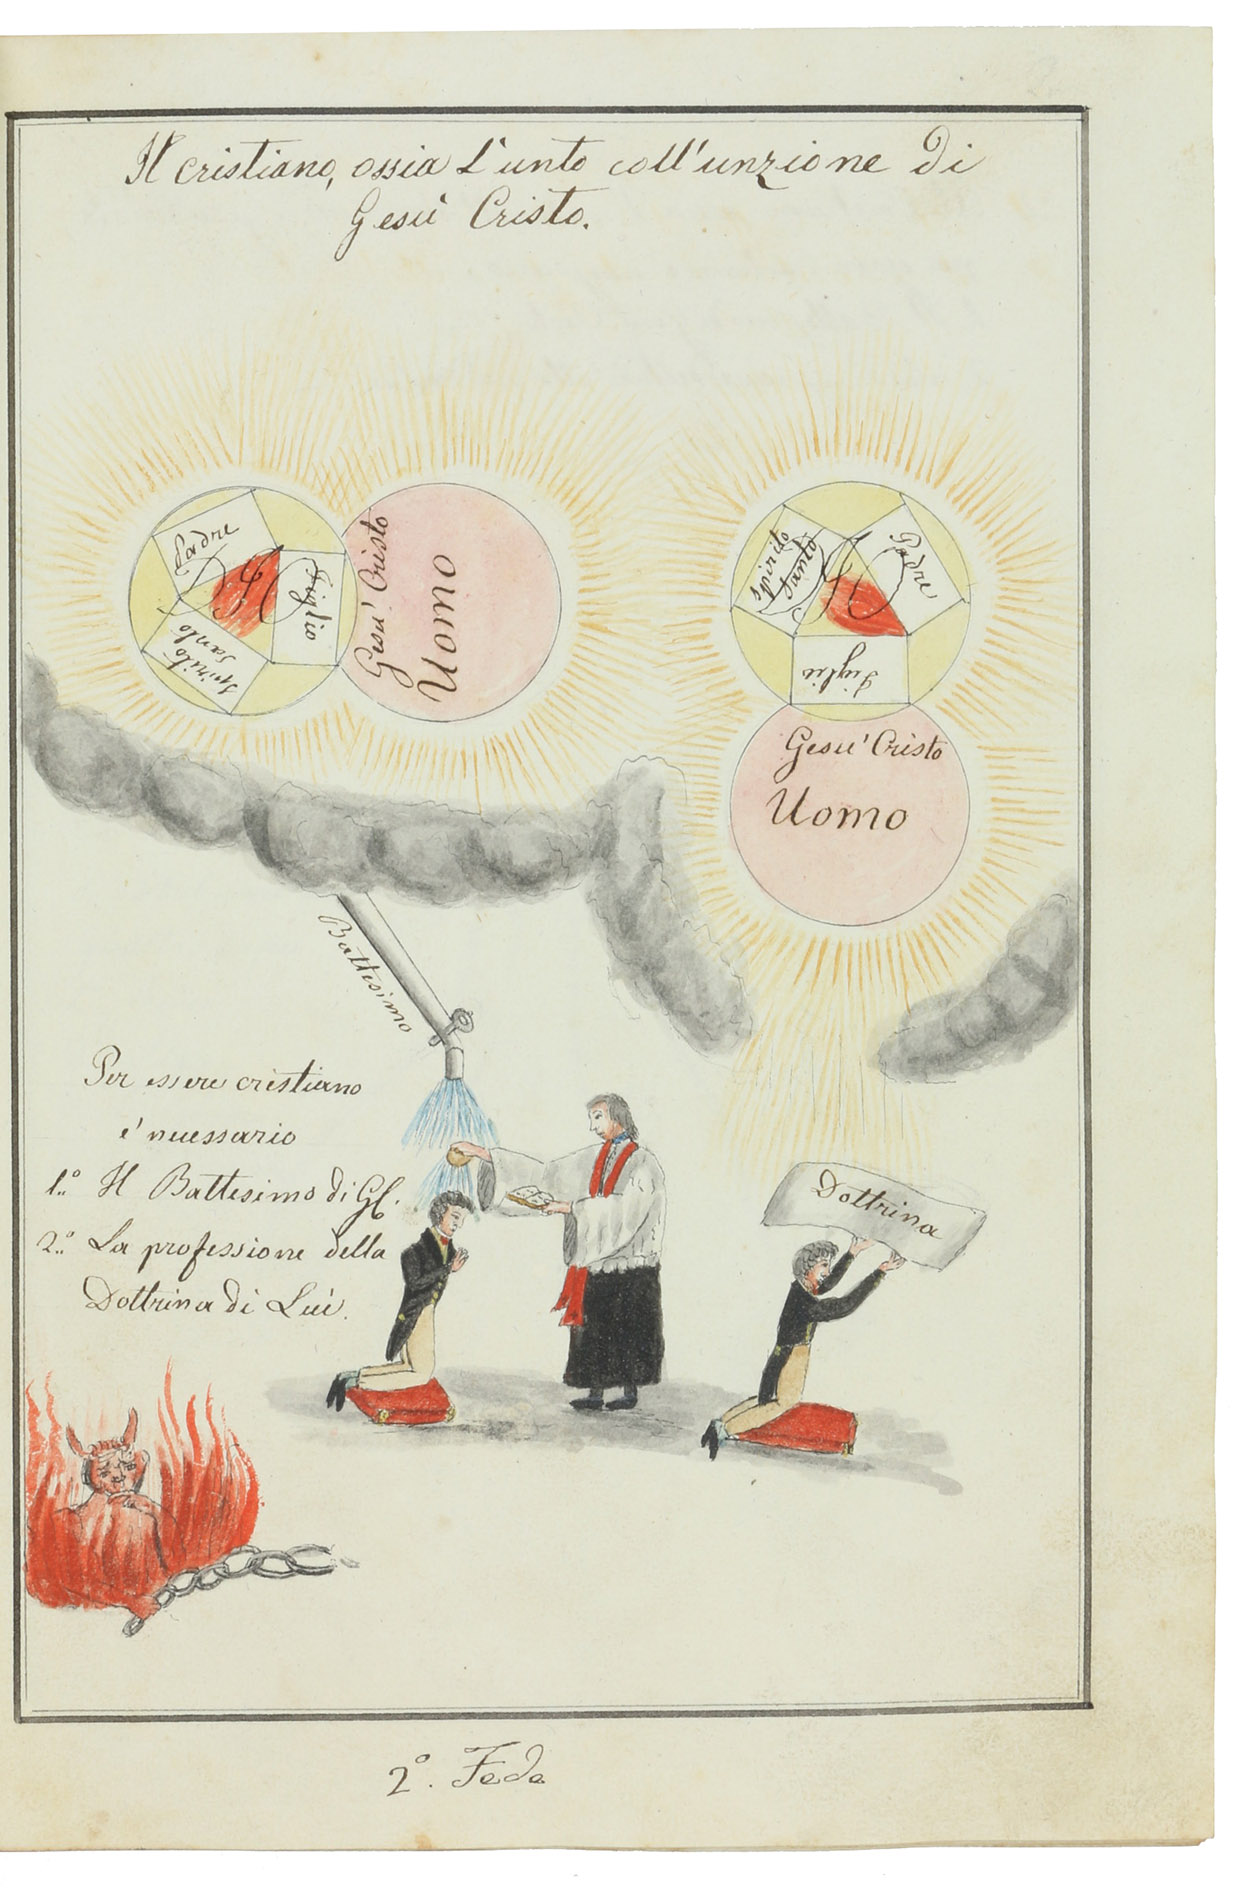 Il cristiano, ossia L'unto coll'unzione di
Gesù Cristo.
Padre
Figlio
Spirito
santo
Gesù Cristo
Uomo
Spirito
Santo
Padre
Figlio
Gesù Cristo
Uomo
Battesimo
Per essere cristiano
è necessario
1.º Il Battesimo di GC.
2.º La professione della
Dottrina di Lui.
Dottrina
2.º Fede